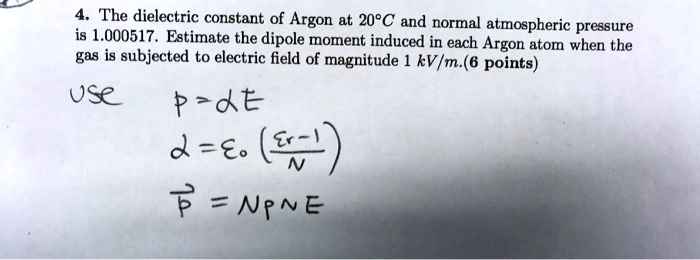 4. The dielectric constant of Argon at 20°C and normal atmospheric pressure
is 1.000517. Estimate the dipole moment induced in each Argon atom when the
gas is subjected to electric field of magnitude 1 kV/m.(6 points)
USE p = αE
α = ε₀ (εr-1/N)
p⃗ = NpNE